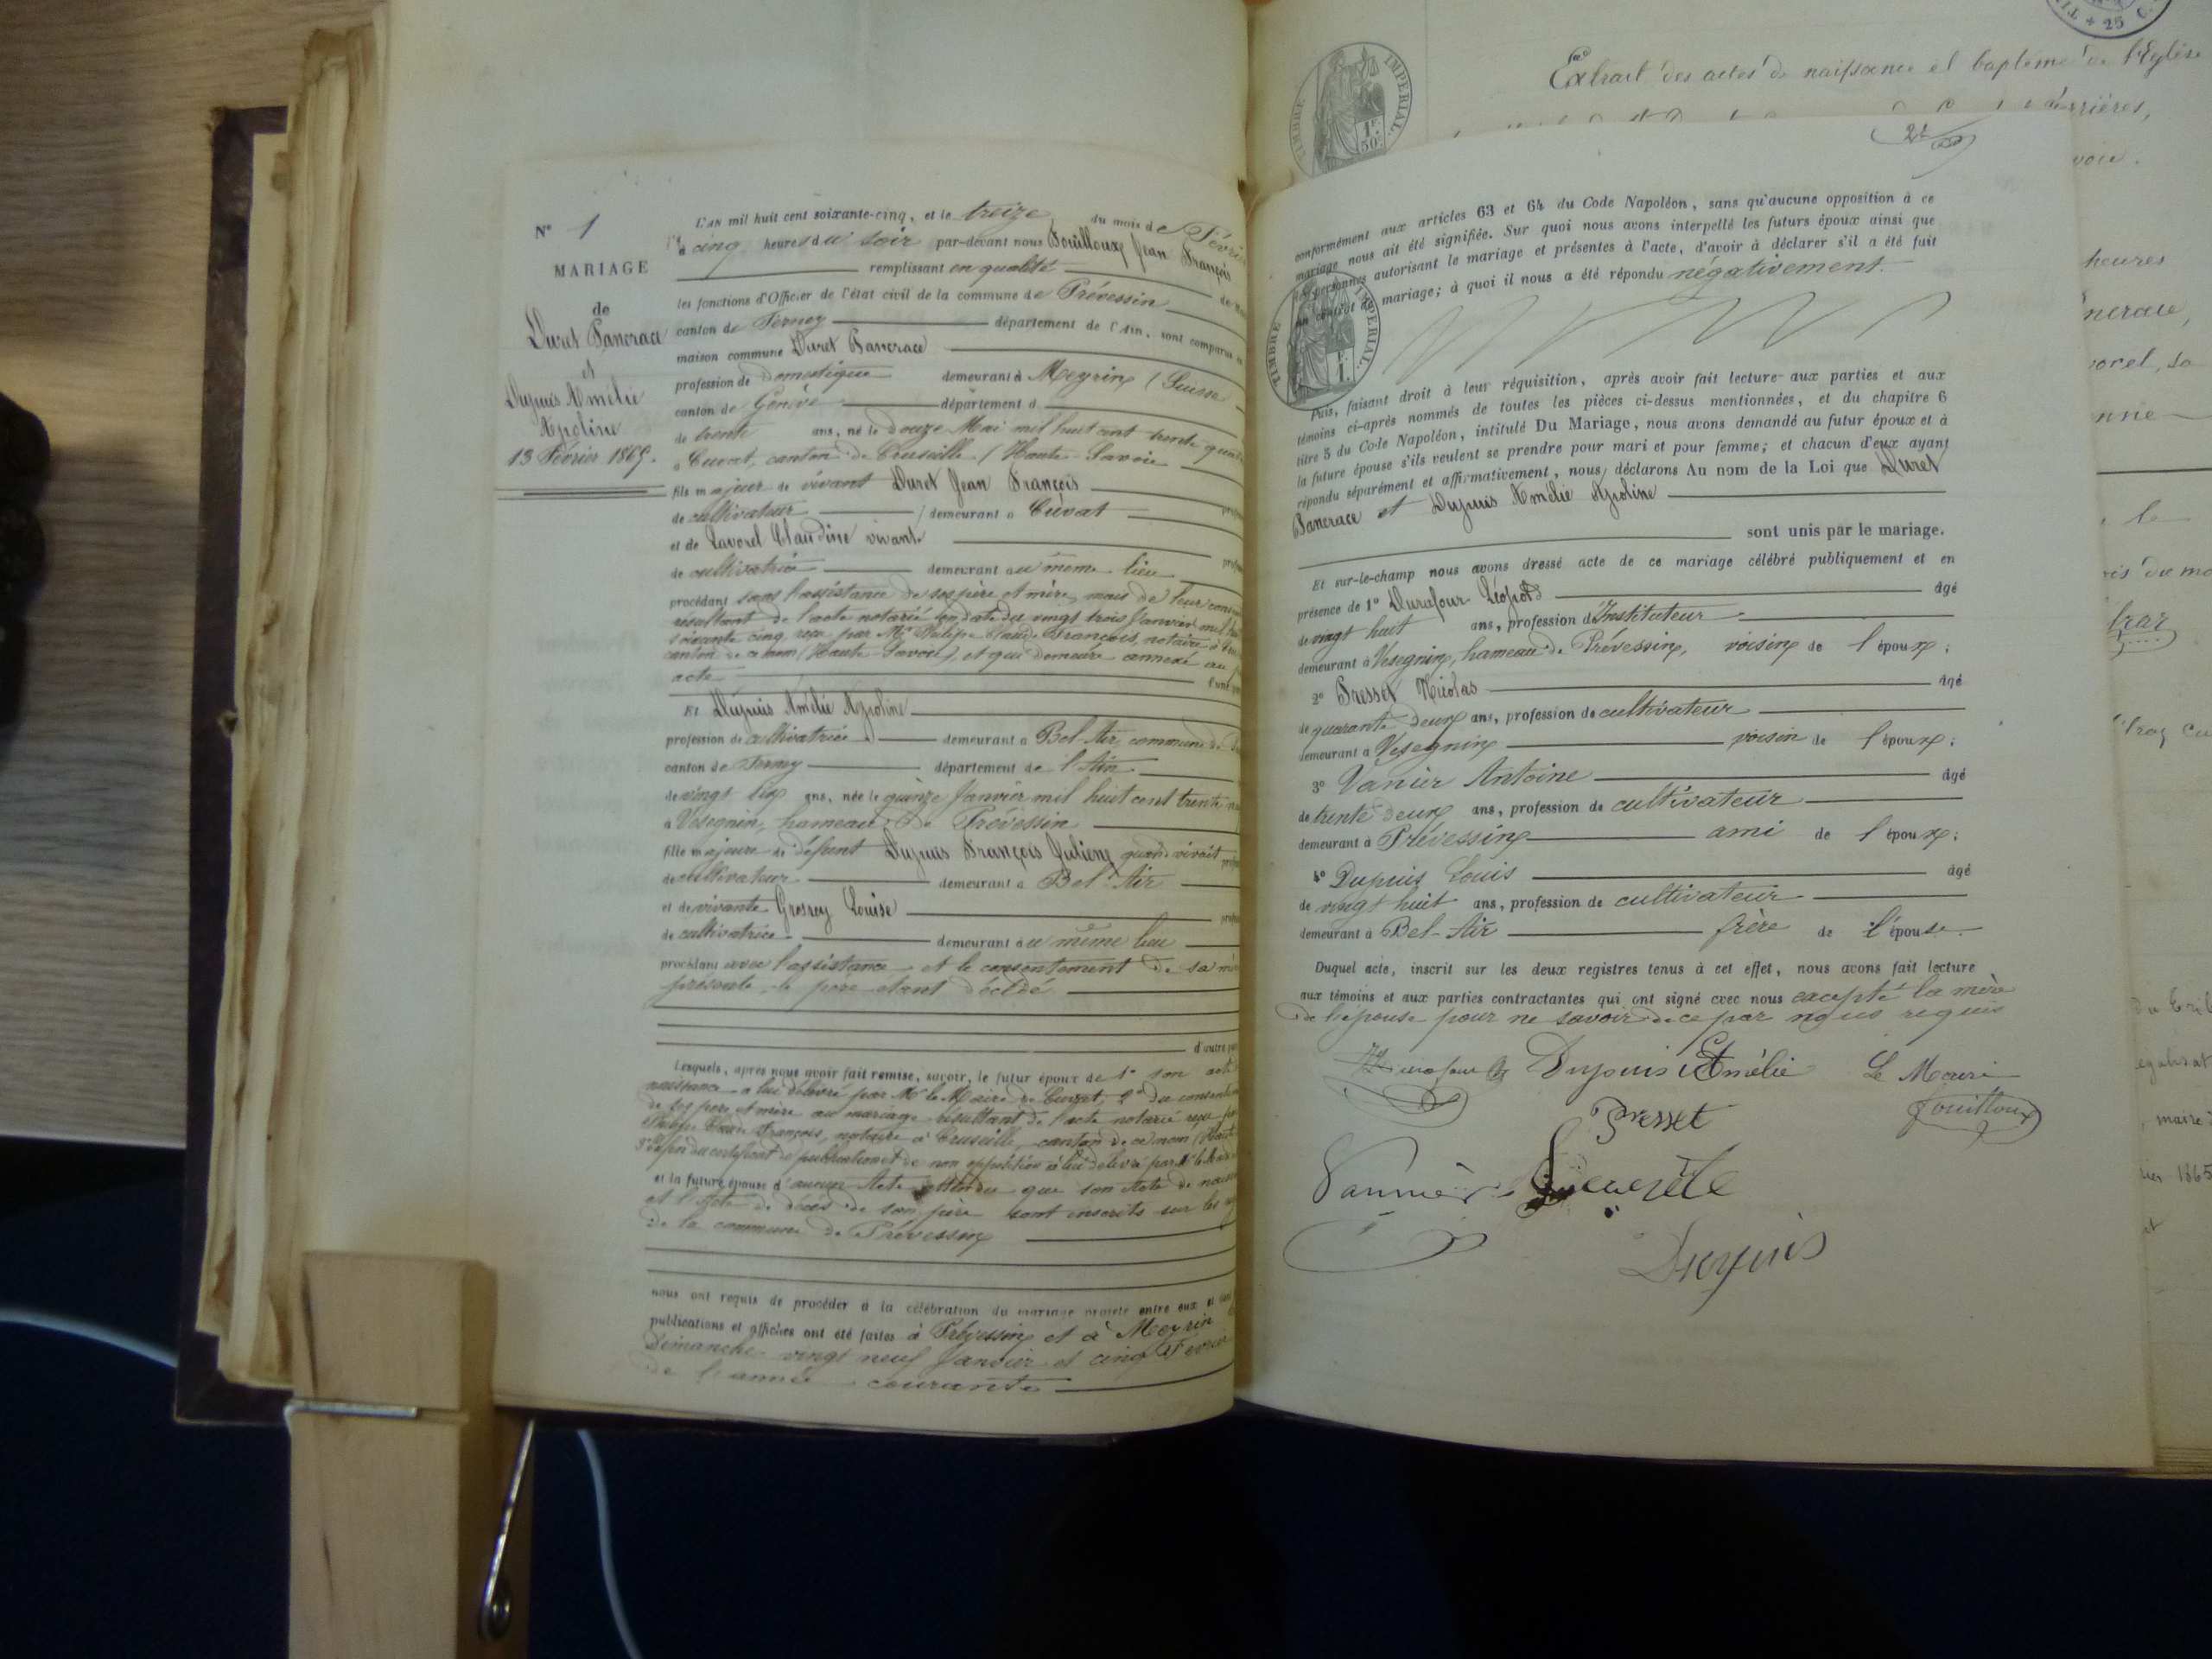 N° 1
MARIAGE
de
Duret Pancrace
et
Dupuis Amélie
Apoline
13 Février 1865.
L'AN mil huit cent soixante-cinq, et le treize du mois de Février
à cinq heures du soir par-devant nous Fouilloux Jean François
remplissant en qualité de
les fonctions d'Officier de l'état civil de la commune de Prévessin
canton de Ferney département de l'Ain, sont comparus
maison commune Duret Pancrace
profession de domestique demeurant à Meyrin (Suisse
canton de Genève département d
de trente ans, né le douze Mai mil huit cent trente quatre
à Cuvat, canton de Cruseille (Haute-Savoie
fils majeur de vivant Duret Jean François
de cultivateur demeurant à Cuvat
et de Lavorel Claudine vivante
de cultivatrice demeurant au même lieu
procédant sans l'assistance de ses père et mère, mais de leur
résultant de l'acte notarié en date du vingt trois Janvier mil
soixante cinq reçu par Me Philippe Claude François, notaire à
canton de ce nom (Haute-Savoie), et qui demeure annexé au
acte l'une
Et Dupuis Amélie Apoline
profession de cultivatrice demeurant à Bel-Air commune de
canton de Ferney département de l'Ain
de vingt six ans, née le quinze Janvier mil huit cent trente
à Vésegnin, hameau de Prévessin
fille majeure de défunt Dupuis François Julien quand vivait
de cultivateur demeurant à Bel-Air
et de vivante Grosrey Louise
de cultivatrice demeurant au même lieu
procédant avec l'assistance et le consentement de sa mère
présente, le père étant décédé
d'autre part
Lesquels, après nous avoir fait remise, savoir, le futur époux de 1° son acte
naissance a lui délivré par Mr le Maire de Cuvat, 2° du
de ses père et mère au mariage résultant de l'acte notarié reçu par
Philippe Claude François, notaire à Cruseille, canton de ce nom
du certificat de publication et de non opposition à lui délivré par Mr le
et la future épouse d'aucun Acte attendu que son Acte de
et l'Acte de décès de son père sont inscrits sur les
de la commune de Prévessin
nous ont requis de procéder à la célébration du mariage projeté entre eux et
publications et affiches ont été faites à Prévessin et à Meyrin
Dimanche vingt neuf Janvier et cinq Février
de l'année courante
conformément aux articles 63 et 64 du Code Napoléon, sans qu'aucune opposition à ce
mariage nous ait été signifiée. Sur quoi nous avons interpellé les futurs époux ainsi que
les personnes autorisant le mariage et présentes à l'acte, d'avoir à déclarer s'il a été fait
un contrat de mariage; à quoi il nous a été répondu négativement.
TIMBRE IMPERIAL.
1 F.
Puis, faisant droit à leur réquisition, après avoir fait lecture aux parties et aux
témoins ci-après nommés de toutes les pièces ci-dessus mentionnées, et du chapitre 6
titre 5 du Code Napoléon, intitulé Du Mariage, nous avons demandé au futur époux et à
la future épouse s'ils veulent se prendre pour mari et pour femme; et chacun d'eux ayant
répondu séparément et affirmativement, nous déclarons Au nom de la Loi que Duret
Pancrace et Dupuis Amélie Apoline
sont unis par le mariage.
Et sur-le-champ nous avons dressé acte de ce mariage célébré publiquement et en
présence de 1° Durafour Léopold âgé
de vingt huit ans, profession d'Instituteur
demeurant à Vésegnin, hameau de Prévessin, voisin de l'époux;
2° Presset Nicolas âgé
de quarante deux ans, profession de cultivateur
demeurant à Vésegnin voisin de l'époux;
3° Vanier Antoine âgé
de trente deux ans, profession de cultivateur
demeurant à Prévessin ami de l'époux;
4° Dupuis Louis âgé
de vingt huit ans, profession de cultivateur
demeurant à Bel-Air frère de l'épouse
Duquel acte, inscrit sur les deux registres tenus à cet effet, nous avons fait lecture
aux témoins et aux parties contractantes qui ont signé avec nous excepté la mère
de l'épouse pour ne savoir de ce par nous requis
Durafour Dupuis Amélie Le Maire
Presset Fouilloux
Vannier
Dupuis
Extrait des actes de naissance et baptême de l'Eglise
TIMBRE IMPERIAL.
1 F. 50 C.
25 C.
heures